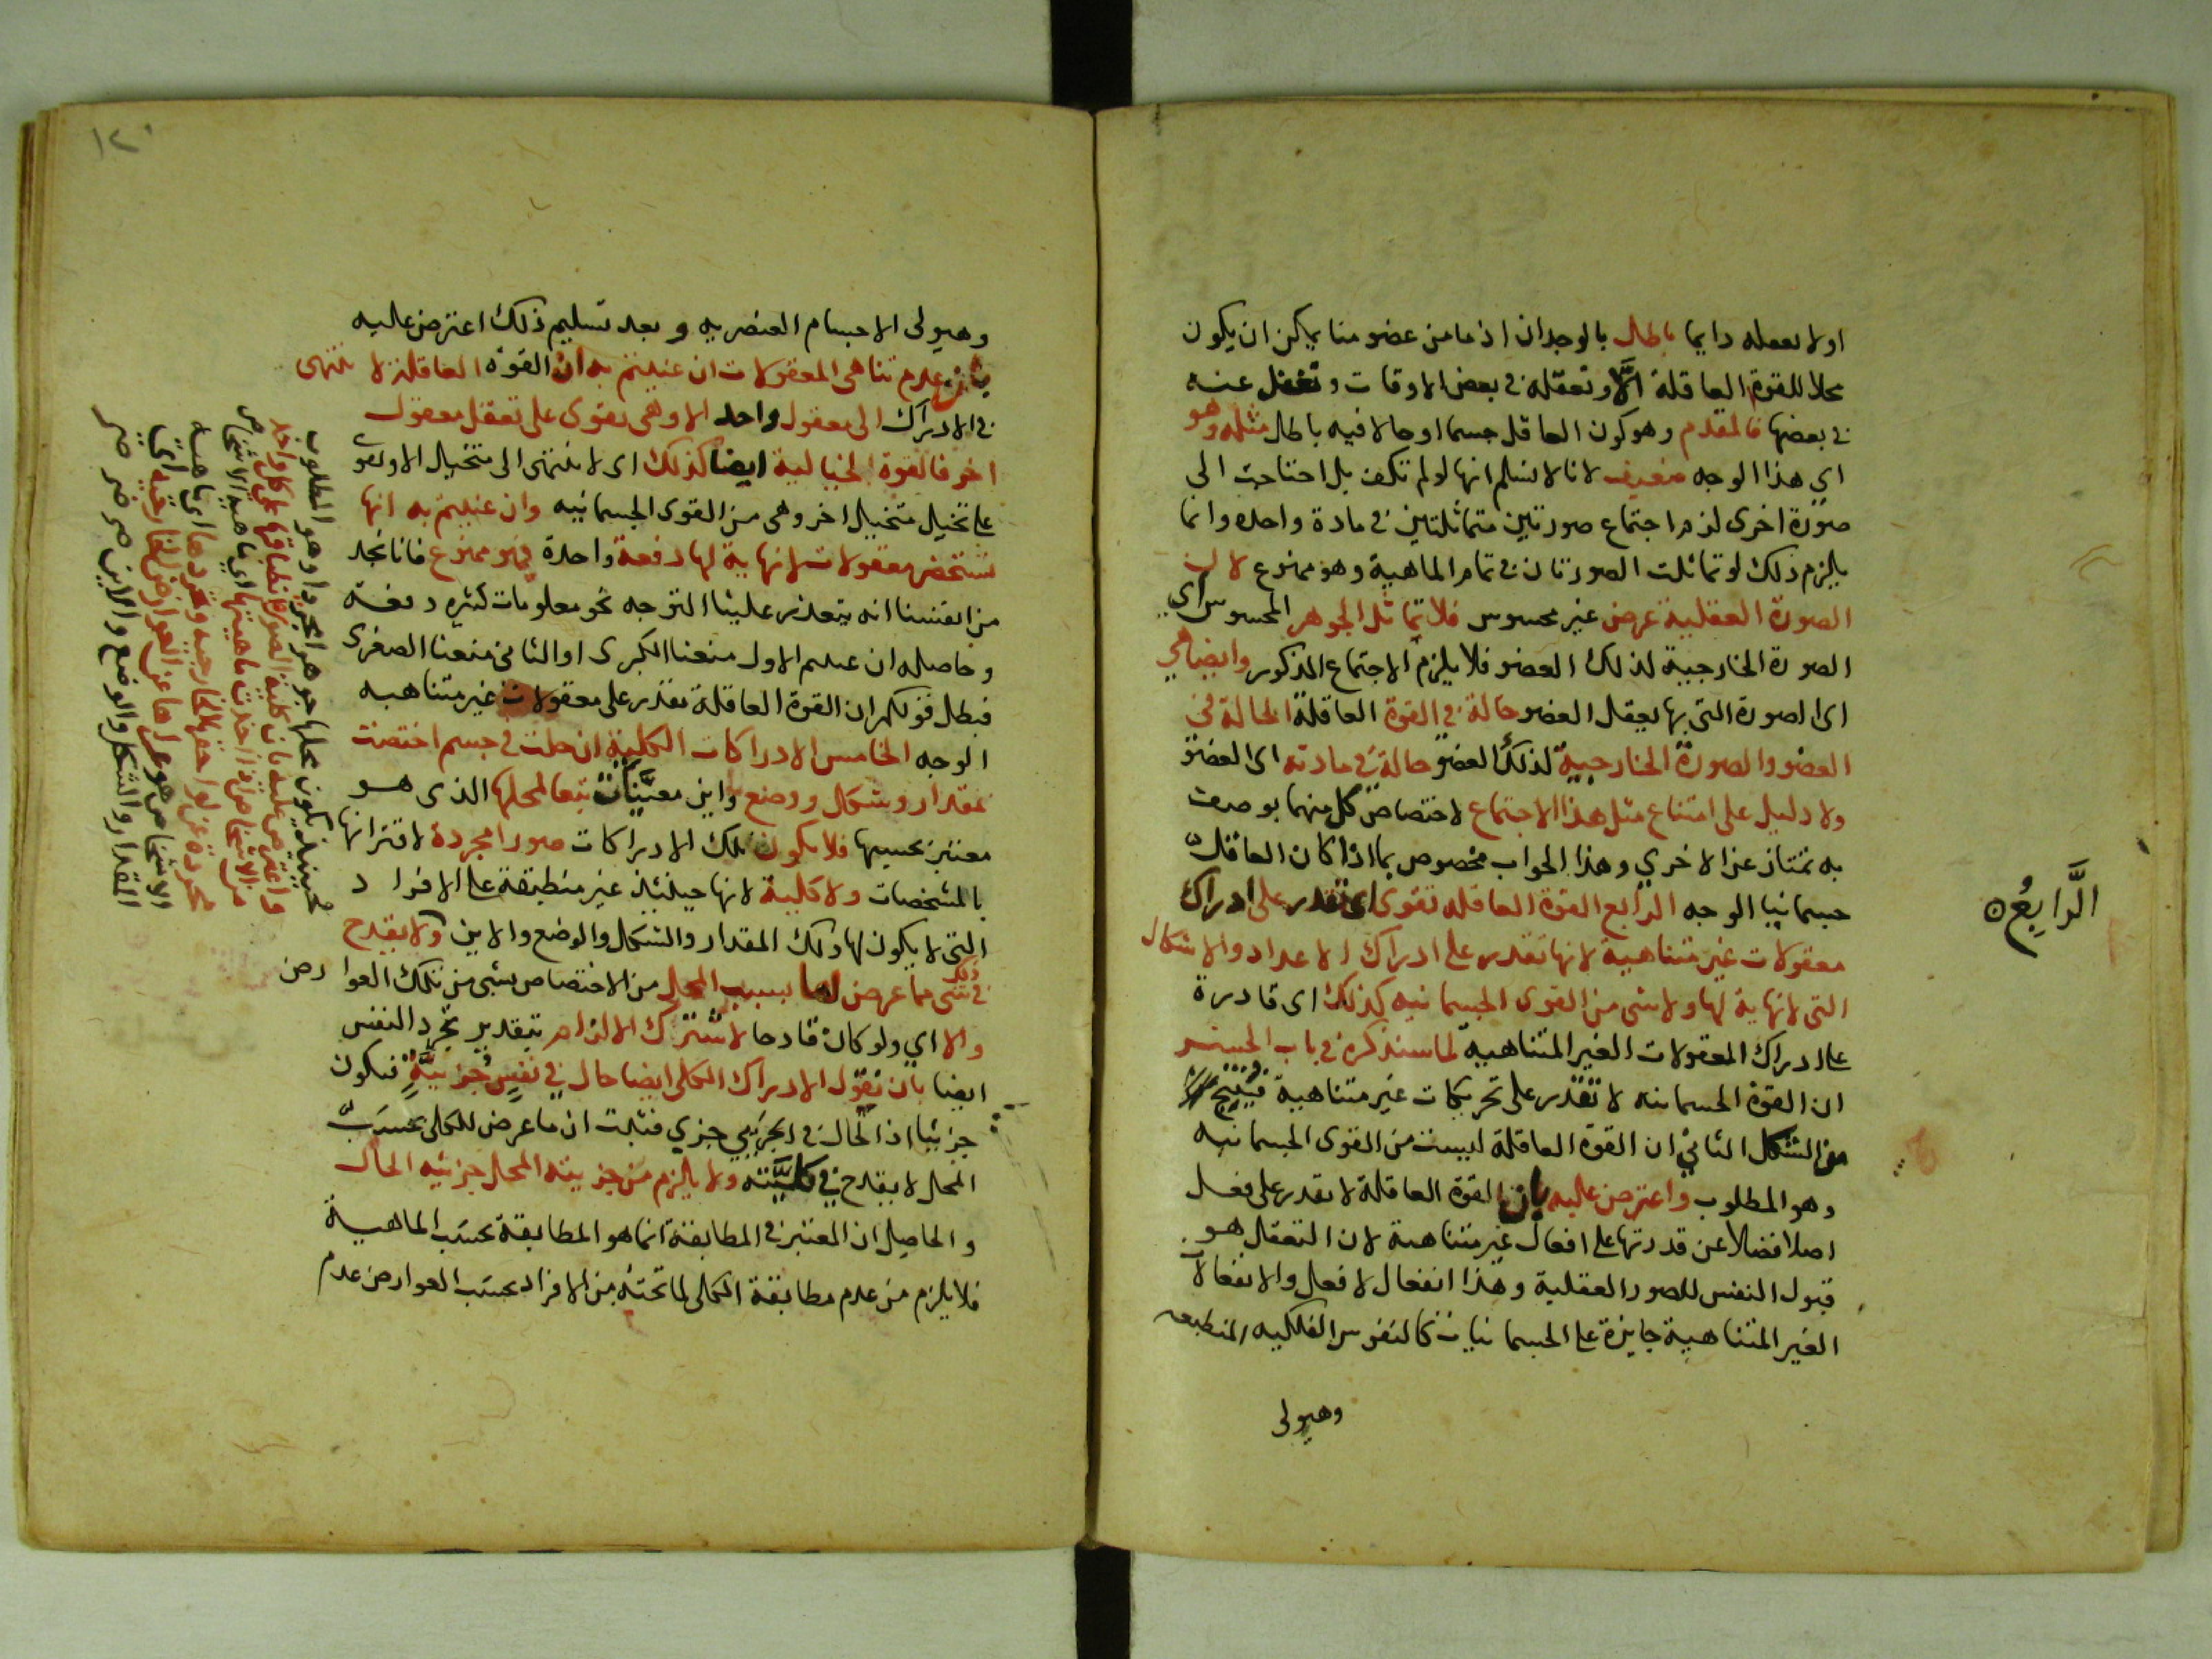 اولا نعقله دايما باطل بالوجدان اذ ما من عضو منا يمكن ان يكون
محلا للقوة العاقلة الا وتعقله في بعض الاوقات وتغفل عنه
في بعضها فالمقدم وهو كون العاقل جسما او حالا فيه باطل مثله وهو
اي هذا الوجه ضعيف لانا لا نسلم انها لو لم تكف بل احتاجت الى
صورة اخرى لزم اجتماع صورتين متماثلتين في مادة واحده وانما
يلزم ذلك لو تماثلت الصورتان في تمام الماهية وهو ممنوع لان
الصورة العقلية عرض غير محسوس فلا تماثل الجوهر المحسوس اي
الصورة الخارجية لذلك العضو فلا يلزم الاجتماع المذكور وايضا هي
اى الصورة التي بها يعقل العضو حالة في القوة العاقلة الحالة في
العضو والصورة الخارجية لذلك العضو حالة في مادته اى العضو
ولا دليل على امتناع مثل هذا الاجتماع لاختصاص كل منهما بوصف
به تمتاز عن الاخري وهذا الجواب مخصوص بما اذا كان العاقل
جسمانيا الوجه الرابع القوة العاقله تقوى اى تقدر على ادراك
معقولات غير متناهية لانها تقدر على ادراك الاعداد والاشكال
التي لا نهاية لها ولا شي من القوى الجسمانيه كذلك اى قادرة
على ادراك المعقولات الغير المتناهية لما سنذكره في باب الحشر
ان القوة الجسمانيه لا تقدر على تحريكات غير متناهية فينتج
من الشكل الثاني ان القوة العاقلة ليست من القوى الجسمانيه
وهو المطلوب واعترض عليه بان القوة العاقلة لا تقدر على فعل
اصلا فضلا عن قدرتها على افعال غير متناهية لان التعقل هو
قبول النفس للصور العقلية وهذا انفعال لا فعل والانفعالات
الغير المتناهية جايزة على الجسمانيات كالنفوس الفلكيه المنطبعه
وهيولى
الرَّابِعُ
١٢٠
وهيولى الاجسام العنصريه وبعد تسليم ذلك اعترض عليه
بان عدم تناهى المعقولات ان عنيتم به ان القوة العاقلة لا تنتهى
في الادراك الى معقول واحد الا وهى تقوى على تعقل معقول
اخر فالقوة الخيالية ايضا كذلك اى لا تنتهى الى متخيل الا وتقوى
على تخيل متخيل اخر وهى من القوى الجسمانيه وان عنيتم به انها
تستحضر معقولات لا نهاية لها دفعة واحدة فهو ممنوع فانا نجد
من انفسنا انه يتعذر علينا التوجه نحو معلومات كثيره دفعة
وحاصله ان عنيتم الاول منعنا الكبرى او الثاني منعنا الصغرى
فبطل قولكم ان القوة العاقلة تقدر على معقولات غير متناهيه
الوجه الخامس الادراكات الكلية ان حلت في جسم اختصت
بمقدار وشكل ووضع واين معينات تبعا لمحلها الذى هو
معتبر بحسبها فلا تكون تلك الادراكات صورا مجردة لاقترانها
بالمشخصات ولا كلية لانها حينئذ غير منطبقة على الافراد
التي لا يكون لها ذلك المقدار والشكل والوضع والاين ولا يقدح
ذلك
في شي مما عرض لها بسبب المحل من الاختصاص بشي من تلك العوارض
والا اي ولو كان قادحا لاشترك الالزام بتقدير تجرد النفس
ايضا بان نقول الادراك الكلي ايضا حال في نفس جزئية فيكون
جزئيا اذ الحال في الجزيي جزي فثبت ان ما عرض للكلي بحسب
المحل لا يقدح في كليته ولا يلزم من جزييته المحل جزئيه الحال
والحاصل ان المعتبر في المطابقة انما هو المطابقة بحسب الماهية
فلا يلزم من عدم مطابقة الكلي لما تحته من الافراد بحسب العوارض عدم
فحينئذ يكون محلها جوهرا مجردا وهو المطلوب
واعترض عليه بان كلية الصورة انطباقها على كل واحد
من الاشخاص اذا اخذت ماهيتها اي ماهية الاشخاص
مجردة عن لواحقها الخارجيه وتجردها اى ماهية
الاشخاص هو عراها عن العوارض الخارجية اي
المقدار والشكل والوضع والاين